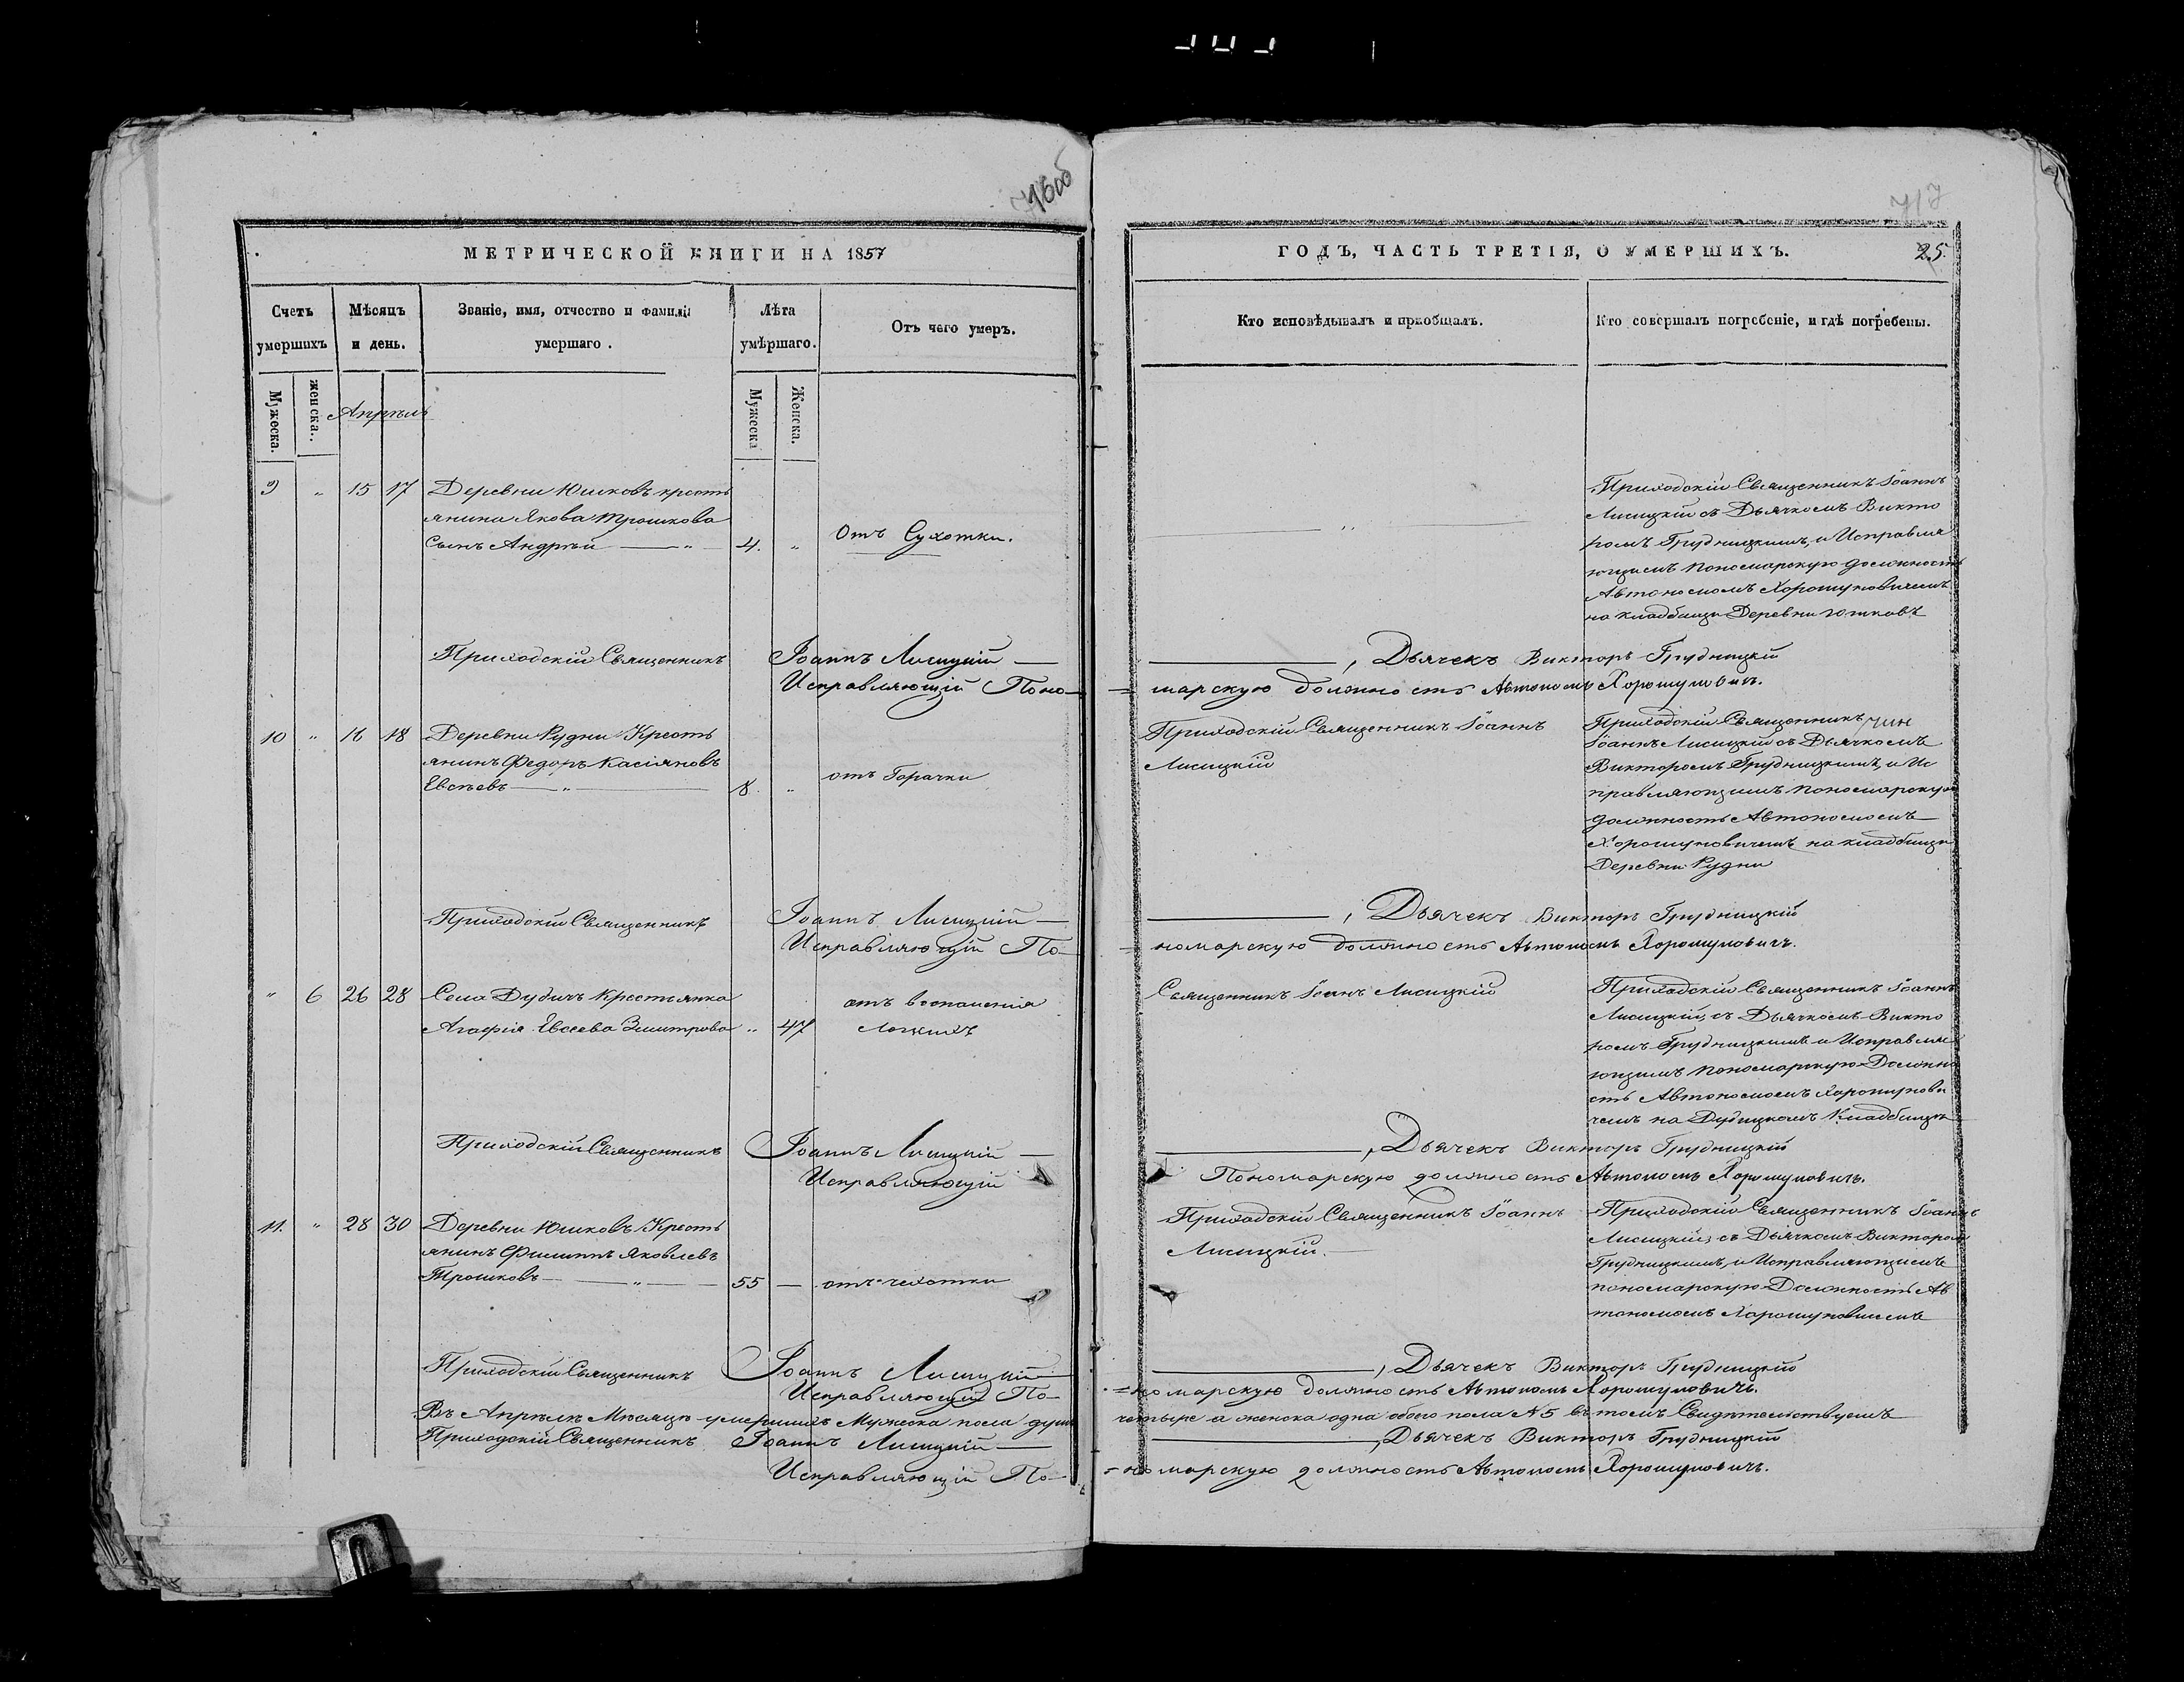 716об
717
МЕТРИЧЕСКОЙ КНИГИ НА 1857
ГОДЪ, ЧАСТЬ ТРЕТІЯ, О УМЕРШИХЪ.
25.
Счетъ умершихъ
Мѣсяцъ и день.
Званіе, имя, отчество и фамилія умершаго.
Лѣта умѣршаго.
Отъ чего умеръ.
Кто исповѣдывалъ и пріобщалъ.
Кто совершалъ погребеніе, и гдѣ погребены.
Мужеска.
женска.
Апрѣль
Мужеска
Женска.
9 " 15 17 Деревни Юшковъ кресть
янина Якова Трошкова
сынъ Андрей — " — 4. " Отъ Сухотки.
— " —
Приходскій Священникъ Іоаннъ
Лисицкій съ Дьячкомъ Викто
ромъ Грудницкимъ, и Исправля
ющимъ пономарскую должность
Автономомъ Хорошуновичемъ
на кладбищи Деревни Юшковъ
Приходскій Священникъ Іоаннъ Лисицкій — , Дьячекъ Викторъ Грудницкій
Исправляющій Поно=марскую должность Автономъ Хорошуновичъ.
10 " 16 18 Деревни Рудни Кресть
янинъ Федоръ Касіяновъ
Евсѣевъ — " — 8. " отъ Горачки
Приходскій Священникъ Іоаннъ
Лисицкій
Приходскій Священникъ
Іоаннъ Лисицкій съ Дьячкомъ
Викторомъ Грудницкимъ, и Ис
правляющимъ пономарскую
должность Автономомъ
Хорошуновичемъ на кладбищи
Деревни Рудни
Приходскій Священникъ Іоаннъ Лисицкій — , Дьячекъ Викторъ Грудницкій
Исправляющій По=номарскую должность Автономъ Хорошуновичъ.
" 6 26 28 Села Дудичъ Крестьянка
Агафія Евсеева Змитрова " 47 отъ воспаленія
Легкихъ
Священникъ Іоаннъ Лисицкій
Приходскій Священникъ Іоаннъ
Лисицкій, съ Дьячкомъ Викто
ромъ Грудницкимъ и Исправля
ющимъ пономарскую Должно
сть Автономомъ Хорошунови
чемъ на Дудицкомъ Кладбищи
Приходскій Священникъ Іоаннъ Лисицкій — , Дьячекъ Викторъ Грудницкій
Исправляющій Пономарскую должность Автономъ Хорошуновичъ.
11. " 28 30 Деревни Юшковъ Кресть
янинъ Филиппъ Яковлевъ
Трошковъ — " — 55 — отъ чехотки
Приходскій Священникъ Іоаннъ
Лисицкій.
Приходскій Священникъ Іоаннъ
Лисицкій, съ Дьячкомъ Викторомъ
Грудницкимъ, и Исправляющимъ
пономарскую Должность Ав
тономомъ Хорошуновичемъ
Приходскій Священникъ Іоаннъ Лисицкій — , Дьячекъ Викторъ Грудницкій
Исправляющій По=номарскую должность Автономъ Хорошуновичъ.
Въ Апрѣлѣ Мѣсяцѣ умершихъ Мужеска пола душъ четыре а женска одна обоего пола № 5 въ томъ Свидѣтельствуемъ
Приходскій Священникъ Іоаннъ Лисицкій — , Дьячекъ Викторъ Грудницкій
Исправляющій По=номарскую должность Автономъ Хорошуновичъ.